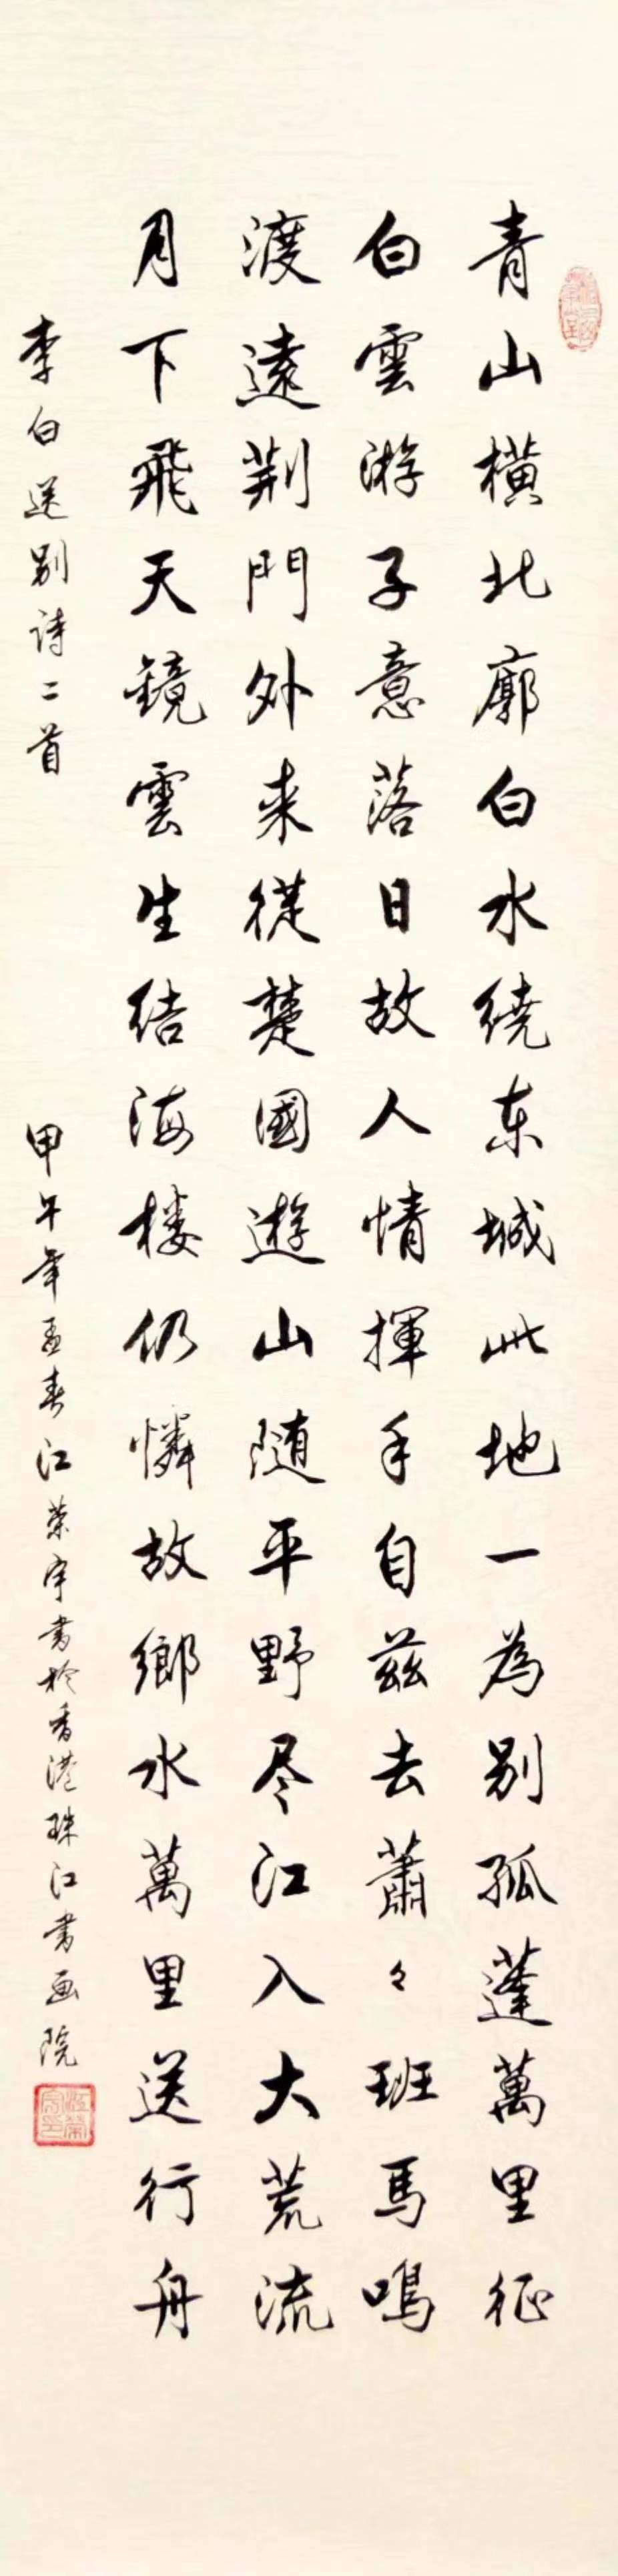 青山橫北廓白水繞东城此地一為別孤蓬萬里征
白雲游子意落日故人情揮手自茲去蕭々班馬鳴
渡遠荆門外来從楚國遊山随平野尽江入大荒流
月下飛天鏡雲生结海楼仍憐故鄉水萬里送行舟
李白送別诗二首
甲午年孟春江荣宇書於香港珠江書画院